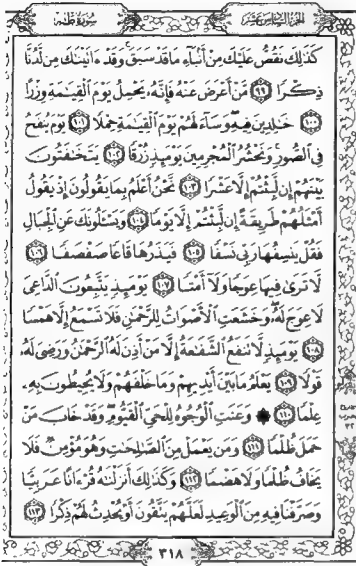 الجزء السادس عشر
سورة طه
كَذَٰلِكَ نَقُصُّ عَلَيْكَ مِنْ أَنۢبَآءِ مَا قَدْ سَبَقَۚ وَقَدْ ءَاتَيْنَٰكَ مِن لَّدُنَّا
ذِكْرًا ٩٩ مَّنْ أَعْرَضَ عَنْهُ فَإِنَّهُۥ يَحْمِلُ يَوْمَ ٱلْقِيَٰمَةِ وِزْرًا
١٠٠ خَٰلِدِينَ فِيهِۖ وَسَآءَ لَهُمْ يَوْمَ ٱلْقِيَٰمَةِ حِمْلًا ١٠١ يَوْمَ يُنفَخُ
فِى ٱلصُّورِۚ وَنَحْشُرُ ٱلْمُجْرِمِينَ يَوْمَئِذٍ زُرْقًا ١٠٢ يَتَخَٰفَتُونَ
بَيْنَهُمْ إِن لَّبِثْتُمْ إِلَّا عَشْرًا ١٠٣ نَّحْنُ أَعْلَمُ بِمَا يَقُولُونَ إِذْ يَقُولُ
أَمْثَلُهُمْ طَرِيقَةً إِن لَّبِثْتُمْ إِلَّا يَوْمًا ١٠٤ وَيَسْـَٔلُونَكَ عَنِ ٱلْجِبَالِ
فَقُلْ يَنسِفُهَا رَبِّى نَسْفًا ١٠٥ فَيَذَرُهَا قَاعًا صَفْصَفًا ١٠٦
لَّا تَرَىٰ فِيهَا عِوَجًا وَلَآ أَمْتًا ١٠٧ يَوْمَئِذٍ يَتَّبِعُونَ ٱلدَّاعِىَ
لَا عِوَجَ لَهُۥۖ وَخَشَعَتِ ٱلْأَصْوَاتُ لِلرَّحْمَٰنِ فَلَا تَسْمَعُ إِلَّا هَمْسًا
١٠٨ يَوْمَئِذٍ لَّا تَنفَعُ ٱلشَّفَٰعَةُ إِلَّا مَنْ أَذِنَ لَهُ ٱلرَّحْمَٰنُ وَرَضِىَ لَهُۥ
قَوْلًا ١٠٩ يَعْلَمُ مَا بَيْنَ أَيْدِيهِمْ وَمَا خَلْفَهُمْ وَلَا يُحِيطُونَ بِهِۦ
عِلْمًا ١١٠ ۞ وَعَنَتِ ٱلْوُجُوهُ لِلْحَىِّ ٱلْقَيُّومِۖ وَقَدْ خَابَ مَنْ
حَمَلَ ظُلْمًا ١١١ وَمَن يَعْمَلْ مِنَ ٱلصَّٰلِحَٰتِ وَهُوَ مُؤْمِنٌ فَلَا
يَخَافُ ظُلْمًا وَلَا هَضْمًا ١١٢ وَكَذَٰلِكَ أَنزَلْنَٰهُ قُرْءَانًا عَرَبِيًّا
وَصَرَّفْنَا فِيهِ مِنَ ٱلْوَعِيدِ لَعَلَّهُمْ يَتَّقُونَ أَوْ يُحْدِثُ لَهُمْ ذِكْرًا ١١٣
٣١٨